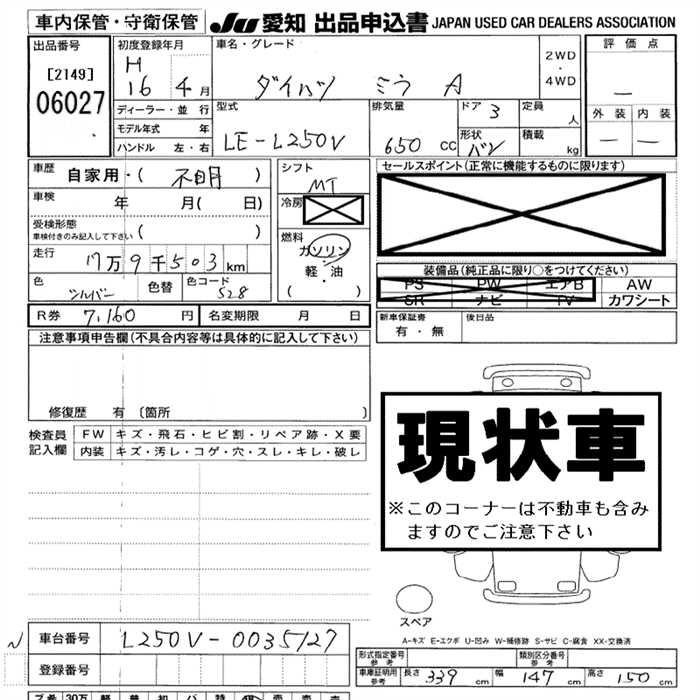 車内保管・守衛保管
JU 愛知 出品申込書 JAPAN USED CAR DEALERS ASSOCIATION
出品番号
[2149]
06027
初度登録年月
H
16 4 月
ディーラー・並 行
モデル年式 年
ハンドル 左・右
車名・グレード
ダイハツ ミラ A
2WD
・
4WD
型式
LE-L250V
排気量
650 CC
ドア 3
形状
バン
定員
人
積載
kg
評価点
—
外装 内装
— —
車歴
自家用・( 不明 )
車検 年 月( 日)
受検形態
車検付きのみ記入して下さい ( )
走行
17万9千503km
色
シルバー
色替
色コード
S28
シフト
MT
冷房
燃料
ガソリン
軽・油
( )
セールスポイント(正常に機能するものに限ります)
装備品(純正品に限り○をつけてください)
PS PW エアB AW
SR ナビ TV カワシート
R券 7,160 円 名変期限 月 日
新車保証書
有・無
後日品
注意事項申告欄(不具合内容等は具体的に記入して下さい)
修復歴 有 〔箇所 〕
検査員
記入欄
FW キズ・飛石・ヒビ割・リペア跡・X要
内装 キズ・汚レ・コゲ・穴・スレ・キレ・破レ
現状車
※このコーナーは不動車も含み
ますのでご注意下さい
スペア
A-キズ E-エクボ U-凹み W-補修跡 S-サビ C-腐食 XX-交換済
N
車台番号 L250V-0035127
登録番号
形式指定番号
参考
類別区分番号
参考
車庫証明用
参考
長さ 339 cm 幅 147 cm 高さ 150 cm